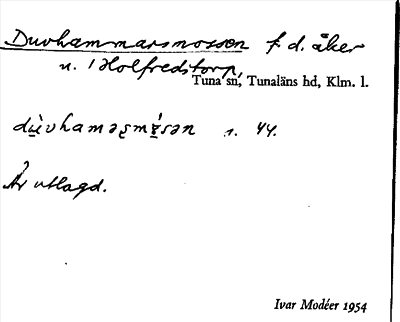 Duvhammarsmossen f.d. åker
u. Holfredstorp,
Tuna sn, Tunaläns hd, Klm. l.
dùvhaməʂmɵ́sən s. 44.
Är utlagd.
Ivar Modéer 1954